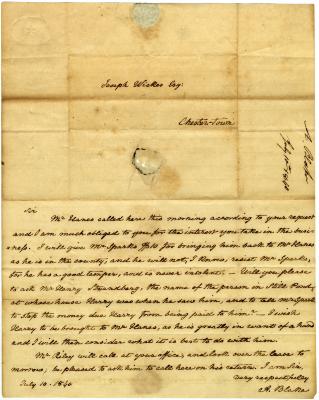 Joseph Wickes Esq:
Chester Town
A. Blake
July 10th 1840
Sir
Mr Hanes called here this morning according to your request
and I am much obliged to you for the interest you take in the busi-
-ness. I will give Mr Sparks $ for bringing him back to Mr Hanes
as he is in the county, and he will not, I know, resist Mr Sparks,
for he has a good temper, and is never insolent. — Will you please
to ask Mr Henry the name of the person in Still Pond,
at whose house Harry was when he saw him, and to tell
to stop the money due Harry from being paid to him? — I wish
Harry to be brought to Mr Hanes, as he is greatly in want of a hand
and I will then consider what it is best to do with him.
Mr Riley will call at your office, and look over the lease to
morrow, be pleased to ask him to call here on his return. I am Sir,
very respectfully
July 10. 1840 A. Blake